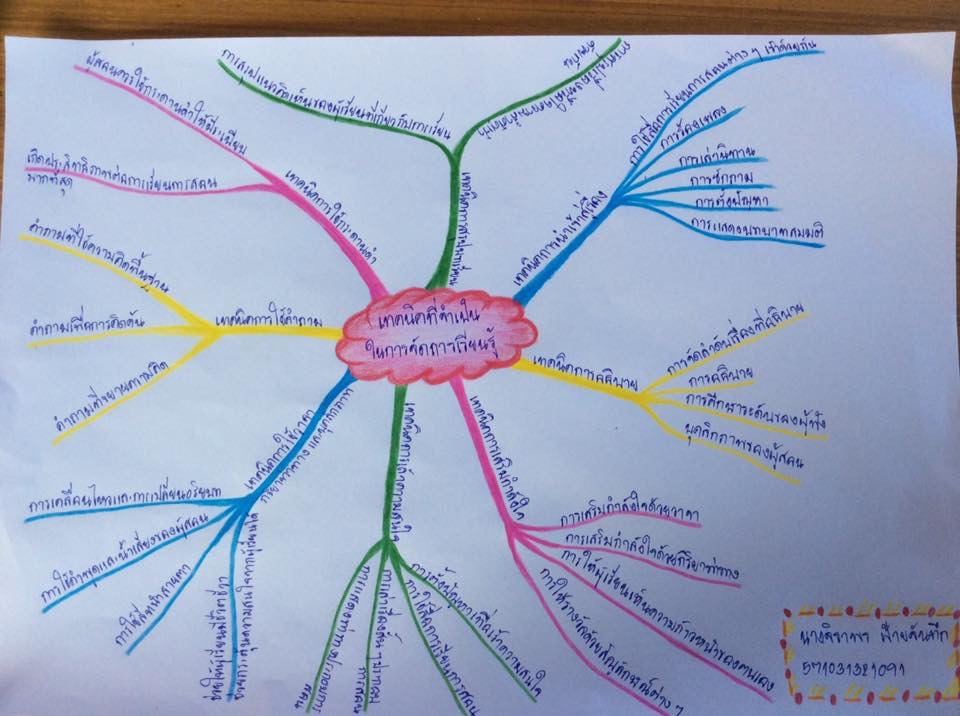 เทคนิคที่จำเป็น
ในการจัดการเรียนรู้
เทคนิคการนำเข้าสู่เรื่อง
การใช้สื่อการเรียนการสอนต่าง ๆ เข้าด้วยกัน
การร้องเพลง
การเล่านิทาน
การซักถาม
การตั้งปัญหา
การแสดงบทบาทสมมติ
เทคนิคการอธิบาย
การจัดลำดับเรื่องที่อธิบาย
การอธิบาย
การศึกษาระดับของผู้ฟัง
บุคลิกภาพของผู้สอน
เทคนิคการเสริมกำลังใจ
การเสริมกำลังใจด้วยวาจา
การเสริมกำลังใจด้วยกิริยาท่าทาง
การให้ผู้เรียนเห็นความก้าวหน้าของตนเอง
การให้รางวัลด้วยสัญลักษณ์ต่าง ๆ
เทคนิคการเร้าความสนใจ
การตั้งปัญหาเพื่อเร้าความสนใจ
การใช้สื่อการเรียนการสอน
การเล่าเรื่องสั้น ๆ ประกอบ
การสอน
การแสดงท่าทางประกอบการ
สอน
เทคนิคการใช้วาจา
กิริยาท่าทาง และบุคลิกภาพ
การเคลื่อนไหวและการเปลี่ยนอริยาบท
การใช้คำพูดและน้ำเสียงของผู้สอน
การใช้สีหน้าสายตา
เทคนิคการใช้คำถาม
คำถามที่ใช้ความคิดพื้นฐาน
คำถามเพื่อการคิดค้น
คำถามที่ขยายความคิด
เทคนิคการใช้กระดานดำ
ผู้สอนควรใช้กระดานดำให้มีระเบียบ
เกิดประสิทธิภาพต่อการเรียนการสอน
มากที่สุด
เทคนิคการสรุปบทเรียน
การสรุปแนวคิดเห็นของผู้เรียนที่เกี่ยวกับการเรียน
571031321091